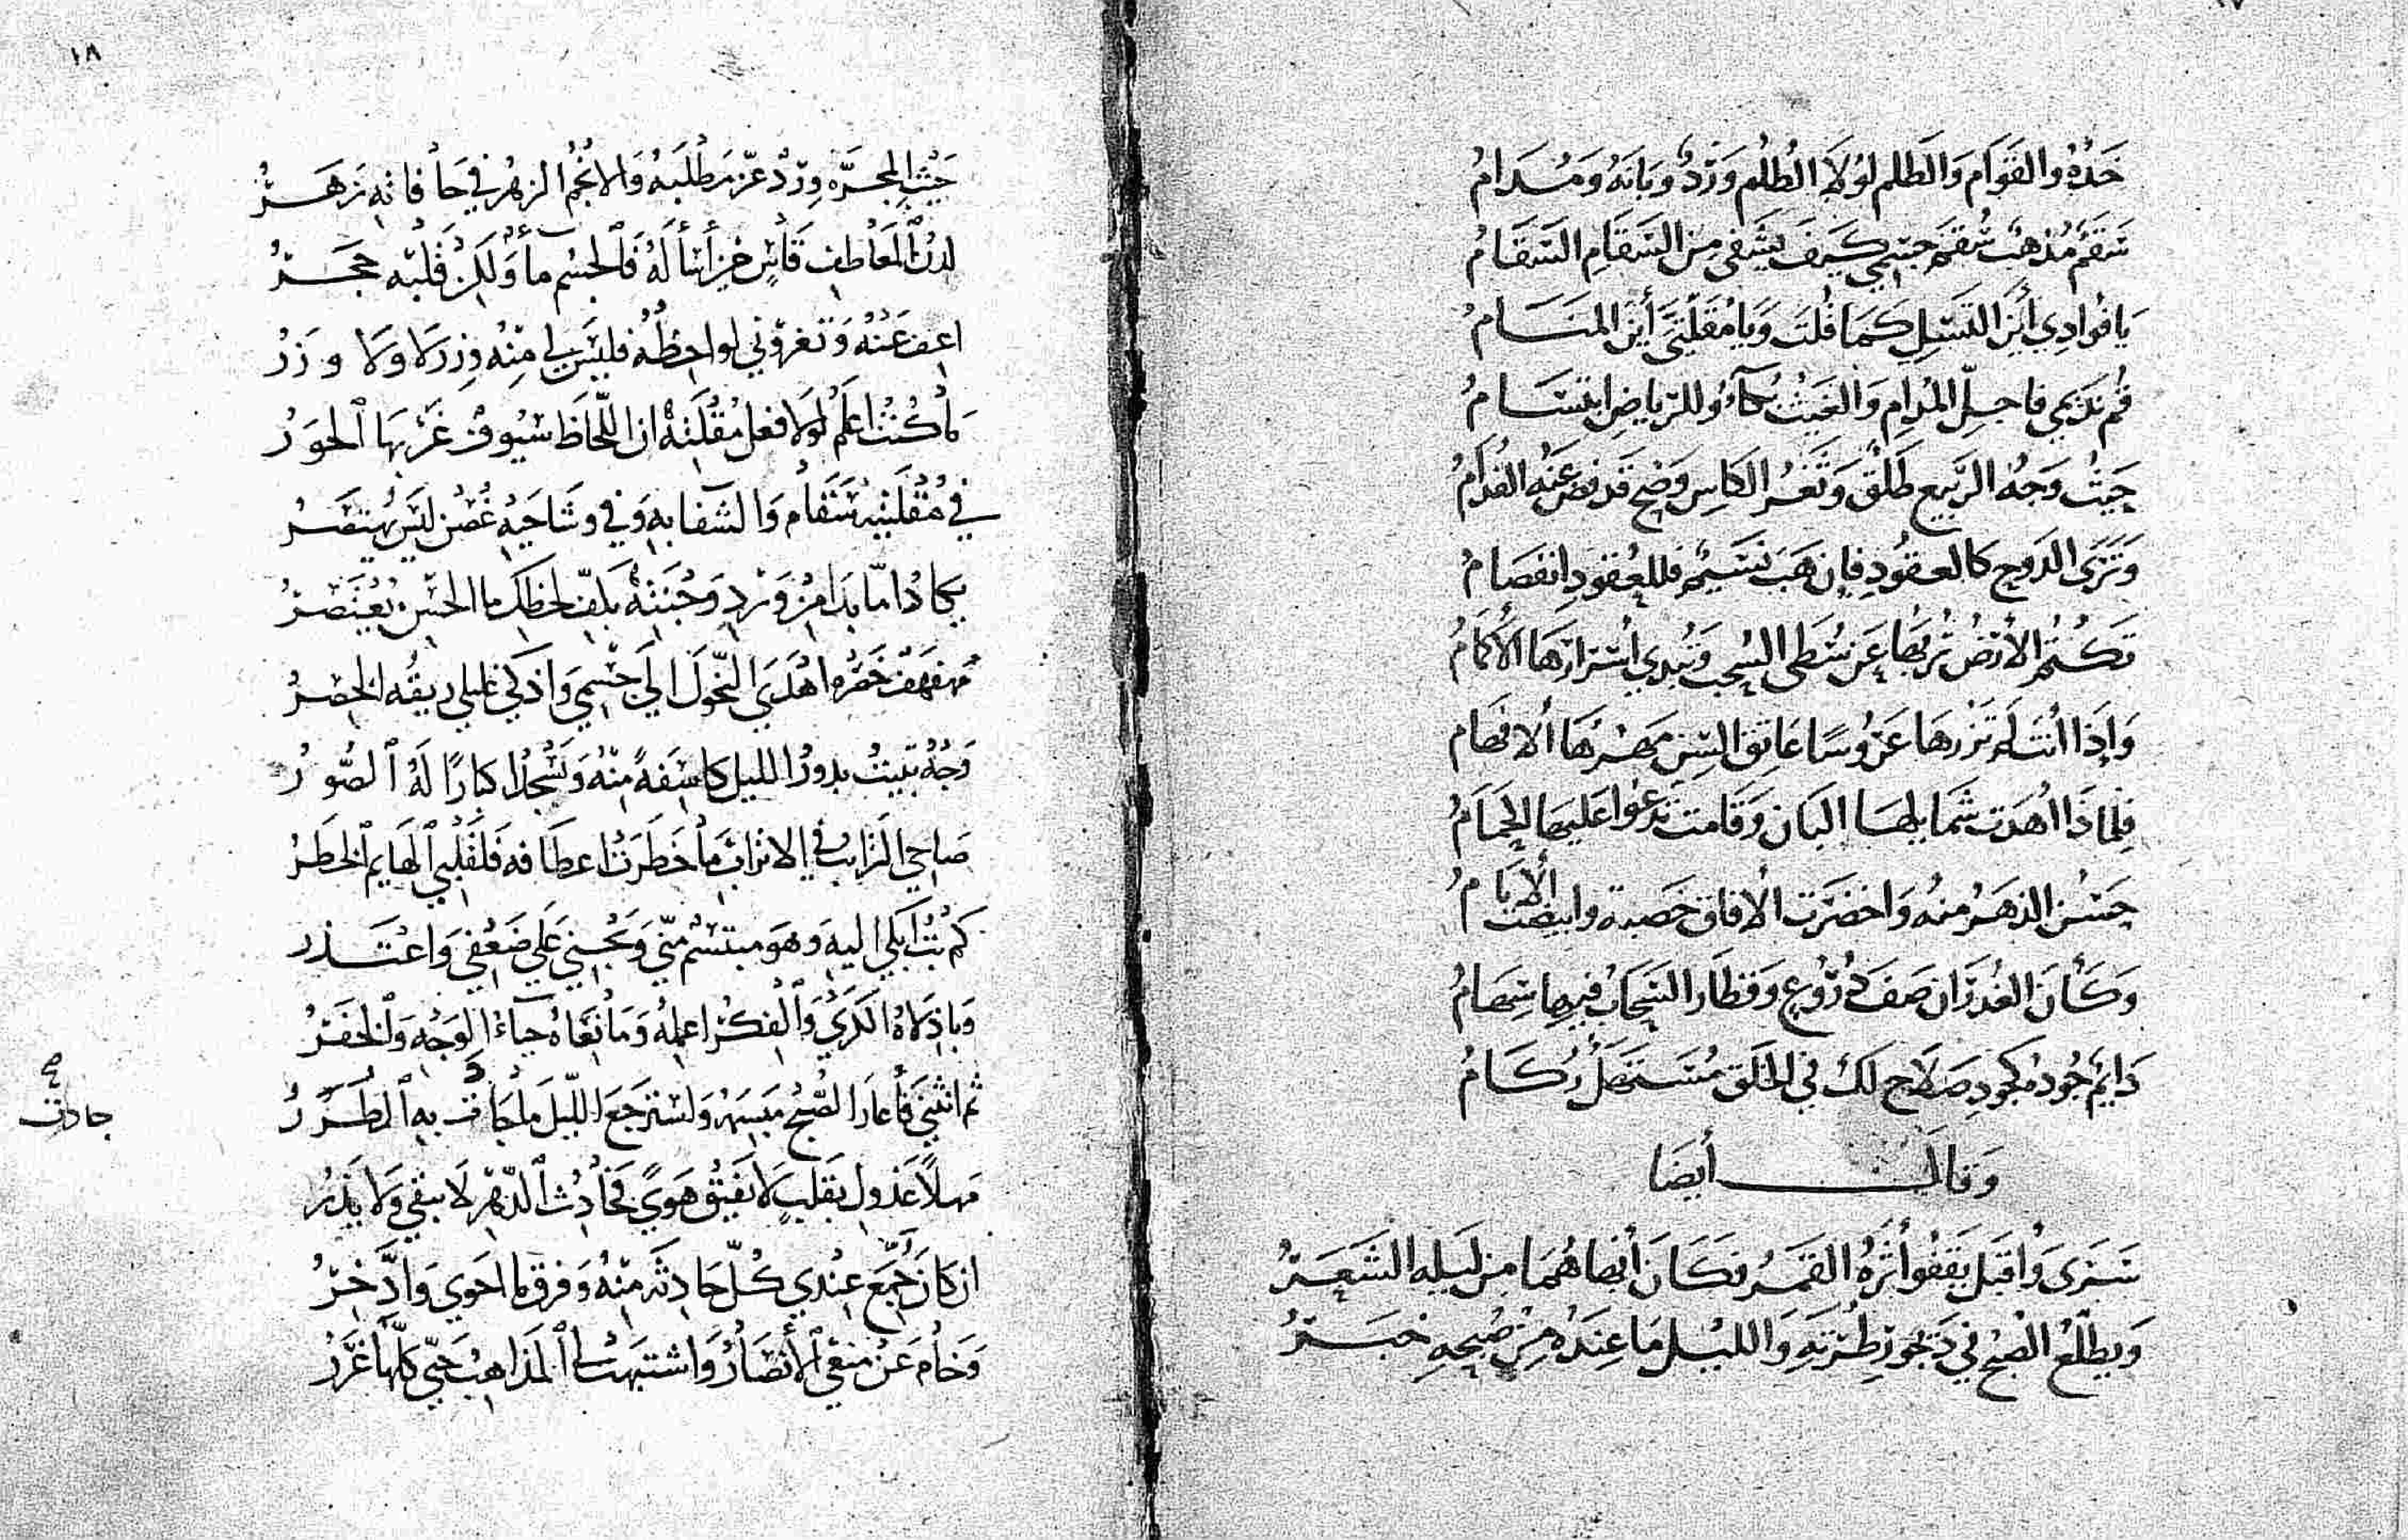 خَدُّهُ والقَوَام وَالظلم لوْلَا الظُلْم وَرْدٌ وَبَانَةٌ وَمُدَامُ
سَقَمٌ مُذهبٌ سُقمَ جسْمي كَيفَ يَشفى مِنَ السَقَامِ السَقَامُ
يَا فُوادِي أَيْنَ التَسَلِي كَمَا قُلتَ وَيَا مُقلَتَى أَيْنَ المَنَامُ
قُم نَدِيمي فاجلِ المُدام وَالغَيثُ بُكآءٌ وللرّياضِ ابتسَامُ
حَيثُ وَجْهُ الرَبيع طَلْقٌ وَثَغرُ الكاسِ وَضح قَد فض عَنهُ الفدَامُ
وَتَرَى الدَوح كالعقُودِ فإن هَبَ نَسيمٌ فللعُقودِ انفصَامُ
تَكتُمُ الأرْضُ تُربَها عَن سُطَى السُحب وَتُبدِي اسْرَارَهَا الأكمَامُ
وَإذَا أنتَ لَم تَزُرهَا عَرُوسًا عَاتِقَ السِّن مَهرُهَا الافهَام
فَلِماذَا اهدَت شَمايلهَا البَان وَقَامت تدعُوا عَليهَا الحَمَامُ
حَسُن الدَهرُ منهُ وَاخضَرَت الآفاق خصبة وابيضت الأيَامُ
وَكَأنَ الغُدرَان صَف دُرُوع وَقطَار السَحَاب فيهَا سِهَامُ
دَايم جُود كجُودِ صَلَاح لَك في الخَلق مُستَهل رُكَامُ
وَقالَ أيضَا
سَرَى وَأقبَل يَقفُوا أثرَهُ القَمَرُ فكَانَ أبهاهُمَا مِن لَيلِه الشَعَرُ
وَيطلُعُ الصُبح في دَيجورِ طُرّتهِ وَالليْل مَا عِندَهُ مِنْ صُبحهِ خبَرُ
١٨
حَيْثُ المجرّه وِرْدٌ عَزّ مَطْلَبهُ وَالانجُمُ الزهر في حَافاتِه زَهَرُ
لدنُ المَعَاطِفِ قَاسٍ حِينَ أسْألُهُ فَالجسْم مآءٌ وَلَكِنْ قَلْبُه حَجَرُ
اعِف عَنْهُ وَتَغزوني لواحِظُه فليسَ لي مِنْه وِزر لَا وَلَا وَزَرُ
مَا كُنتُ اعلَمُ لَوْلَا فعل مُقْلَتهِ ان اللّحَاظَ سُيُوفٌ غَرْبهَا الحوَرُ
في مُقْلَتيهِ سَقَامٌ وَالشّفا بهِ وَفي وشَاحَيْهِ غُصْن ليْسَ يُهتصَرُ
يكادُ امّا بَدَا مِنْ وَرْدِ وَجْنَتهِ بِكَفّ لحظك ما الحسْنِ يُعْتَصَرُ
مُهفهَف خَصْرُه اهْدَى النّحُولَ الي جِسْمِي وَاذكي غليلي ريقُه الخصِرُ
وَجْهٌ تبيتُ بدورُ الليل كاسِفةً مِنْهُ وَتَسْجُدُ اكبارًا لَهُ الصُّوَرُ
صَاحي التَرَايب في الاتراب مَا خَطَرَتْ اعطَافه فَلقَلْبي الهَايم الخطَرُ
كم بتُّ ابكي اليه وَهوَ مبتسِمٌ منّي وَيَجْني عَلي ضَعْفي وَاعْتَذر
وَبَاذلَاهُ الكَرَي وَالفِكْرُ اعمِلهُ وَمَانعَاهُ حيَاءُ الوَجْهِ وَالخفَرُ
ثم انثني فَأعارَ الصُّبْحَ مَبْسِمَهُ وَاسترَجَعَ اللّيل مَا جَادت به الطُرَرُ
جادت
صح
مَهلاً عَذولِ بقلبٍ لَا يَفيقُ هَوًي فحَادِثُ الدّهر لَا يبقي وَلَا يَذَرُ
ان كانَ جَمّع عِنْدي كُلّ حَادِثَه مِنْهُ وَفرق ما احَوي وَادّخِرُ
وَخامَ عَنْ مَنعي الأنْصَارُ وَاشتبَهت المذاهِبُ حَتّي كلّها غَرَرُ